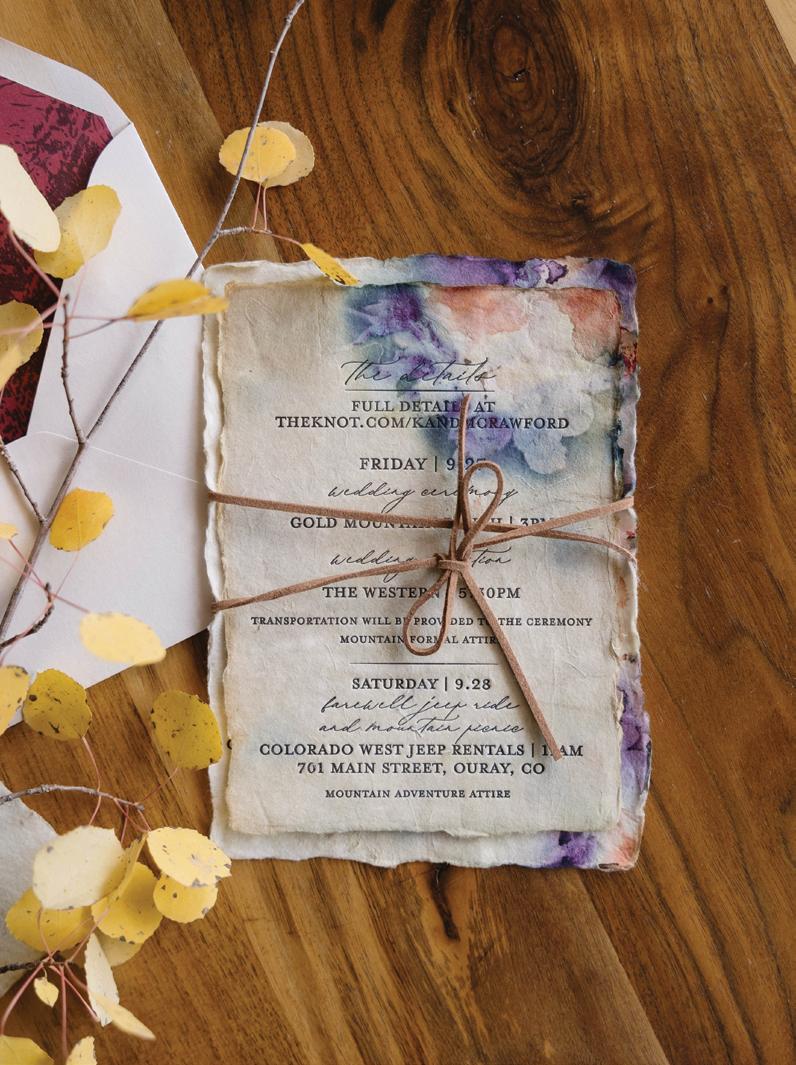 the details
FULL DETAILS AT
THEKNOT.COM/KANDMCRAWFORD
FRIDAY | 9.27
wedding ceremony
GOLD MOUNTAIN | 3PM
wedding
THE WESTERN | 5:30PM
TRANSPORTATION WILL BE PROVIDED TO THE CEREMONY
MOUNTAIN FORMAL ATTIRE
SATURDAY | 9.28
farewell jeep ride
and mountain picnic
COLORADO WEST JEEP RENTALS |
701 MAIN STREET, OURAY, CO
MOUNTAIN ADVENTURE ATTIRE